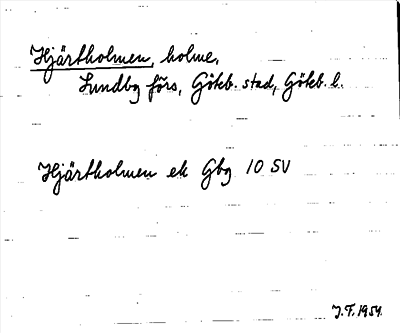 Hjärtholmen, holme,
Lundby förs, Göteb. stad, Göteb. l.
Hjärtholmen ek Gbg 10 SV
J.F. 1954.